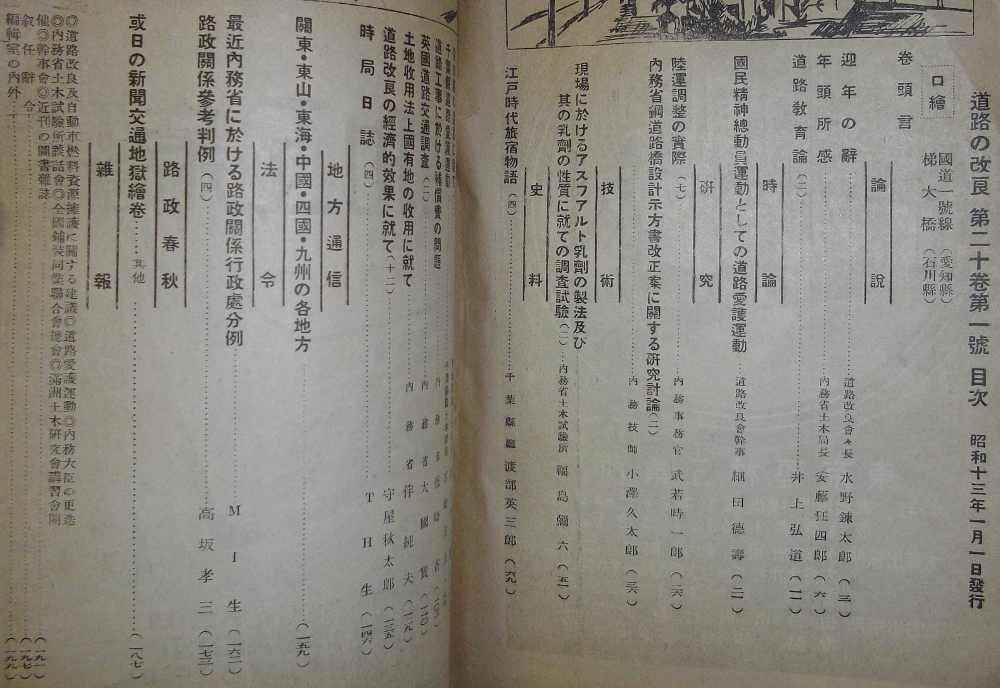 道路の改良 第二十卷第一號 目次 昭和十三年一月一日發行
口繪 國道一號線(愛知縣)
梯大橋(石川縣)
卷頭言
論說
迎年の辭 道路改良會々長 水野鍊太郎(三)
年頭所感 內務省土木局長 安藤狂四郎(六)
道路教育論(二) 井上弘道(一一)
時論
國民精神總動員運動としての道路愛護運動 道路改良會幹事 細田德壽(二一)
硏究
陸運調整の實際(七) 內務事務官 武若時一郎(二六)
內務省鋼道路橋設計示方書改正案に關する硏究討論(二) 內務技師 小澤久太郎(三六)
技術
現場に於けるアスフアルト乳劑の製法及び
其の乳劑の性質に就ての調査試驗(二) 內務省土木試驗所 福島彌六(五一)
史料
江戶時代旅宿物語(四) 千葉縣廳 渡部英三郎(六九)
道路工事に於ける補償費の問題
英國道路交通調査(二) 內務省 大國實(一一〇)
土地收用法上國有地の收用に就て 內務省 伴純夫(一一九)
道路改良の經濟的效果に就て(十二) 守屋秋太郎(一三五)
時局日誌(四) TH生(一四六)
地方通信
關東・東山・東海・中國・四國・九州の各地方(一五九)
法令
最近內務省に於ける路政關係行政處分例 MI生(一六一)
路政關係參考判例(四) 高坂孝三(一七三)
路政春秋
或日の新聞交通地獄繪卷 其他(一八七)
雜報
◎道路改良及自動車燃料資源擁護に關する建議◎道路愛護運動◎內務大臣の更迭
◎內務省土木試驗所談話會◎全國鋪裝同業聯合會總會◎滿洲土木硏究會講習會開
催◎幹事會◎近刊の圖書雜誌(一九一)
叙任辭令(一九七)
編輯室の內外(一九九)